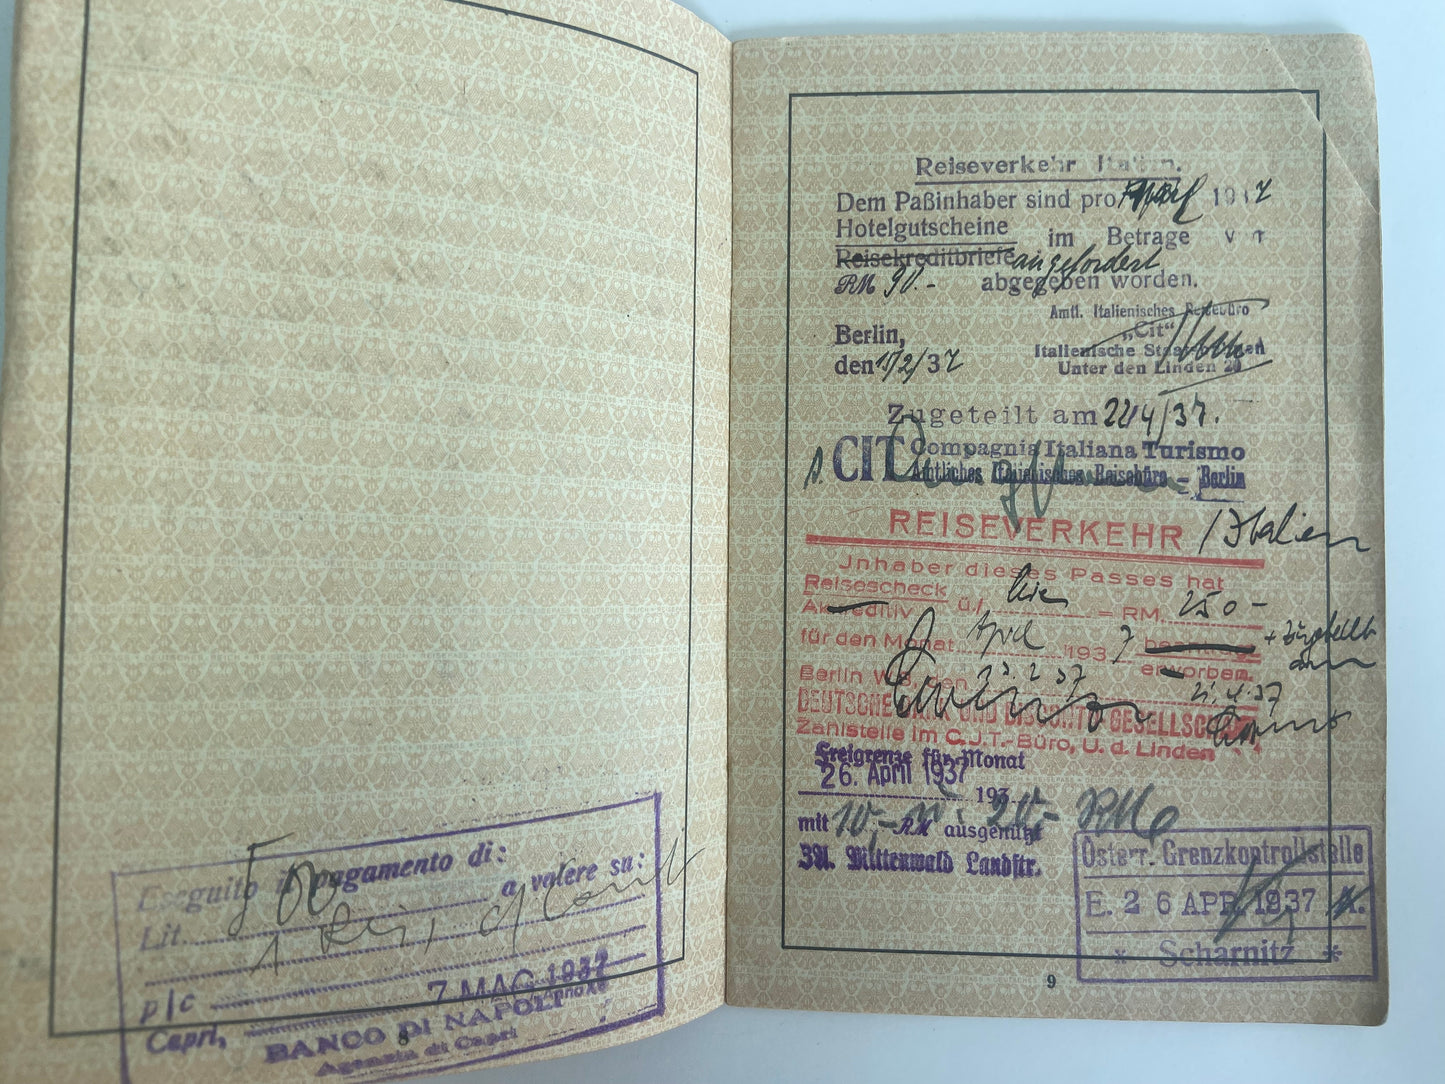 Eseguito il pagamento di:
Lit. 500 a valere su:
p/c
7 MAG. 1937
Capri,
BANCO DI NAPOLI
Agenzia di Capri
8
Reiseverkehr Italien.
Dem Paßinhaber sind pro April 1937
Hotelgutscheine im Betrage von
Reisekreditbriefe angefordert
RM 90.- abgegeben worden.
Amtl. Italienisches Reisebüro
Berlin, „Cit“
Italienische Staatsbahnen
den 15/2/37 Unter den Linden 20
Zugeteilt am 22/4/37.
CIT Compagnia Italiana Turismo
Amtliches Italienisches Reisebüro - Berlin
REISEVERKEHR / Italien
Jnhaber dieses Passes hat
Reisescheck ü./ Lire = RM. 250-
Akkreditiv
für den Monat April 1937 beantragt + zugestellt
am
Berlin W8, den 15.2.37 erworben. 21.4.37
DEUTSCHE BANK UND DISCONTO GESELLSCHAFT
Zahlstelle im C.J.T.-Büro, U. d. Linden
Freigrenze für Monat
26. April 1937
193
mit 10,- RM ausgenützt
ZA. Mittenwald Landstr.
Österr. Grenzkontrollstelle
E. 26 APR. 1937
* Scharnitz *
9